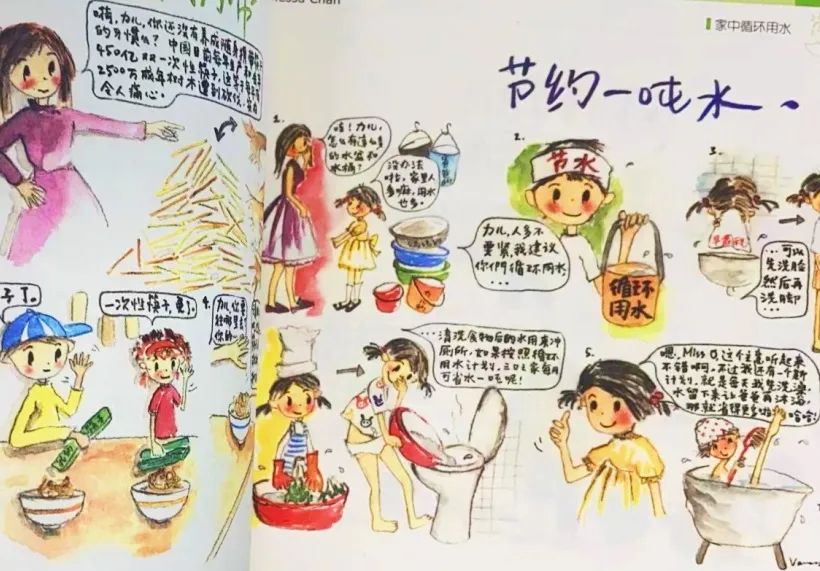 essa Chan
家中循环用水
力儿,你还没有养成随身携带筷子
的习惯吗?中国目前每年生产和
450亿双一次性筷子,这等于每年有
2500万成年树木遭到砍伐,
令人痛心。
子了。
一次性筷子,
4.
力儿,
节约一吨水.
1.
咦!力儿,
怎么有这么多
的水盆和
水桶?
没办法
啦,家里人
多嘛,用水
也多!
2.
节水
力儿,人多不
要紧,我建议
你们循环用水
...
循环
用水
3.
...可以
先洗脸
然后再
洗脚...
...清洗食物后的水用来冲
厕所,如果按照循环
用水计划,三口之家每月
可省水一吨呢!
5.
嗯,Miss O,这个主意听起来
不错啊,不过我还有一个新
计划,就是每天我先洗澡,
水留下来让爸爸再沐浴,
那就省得更多啦!哈哈!